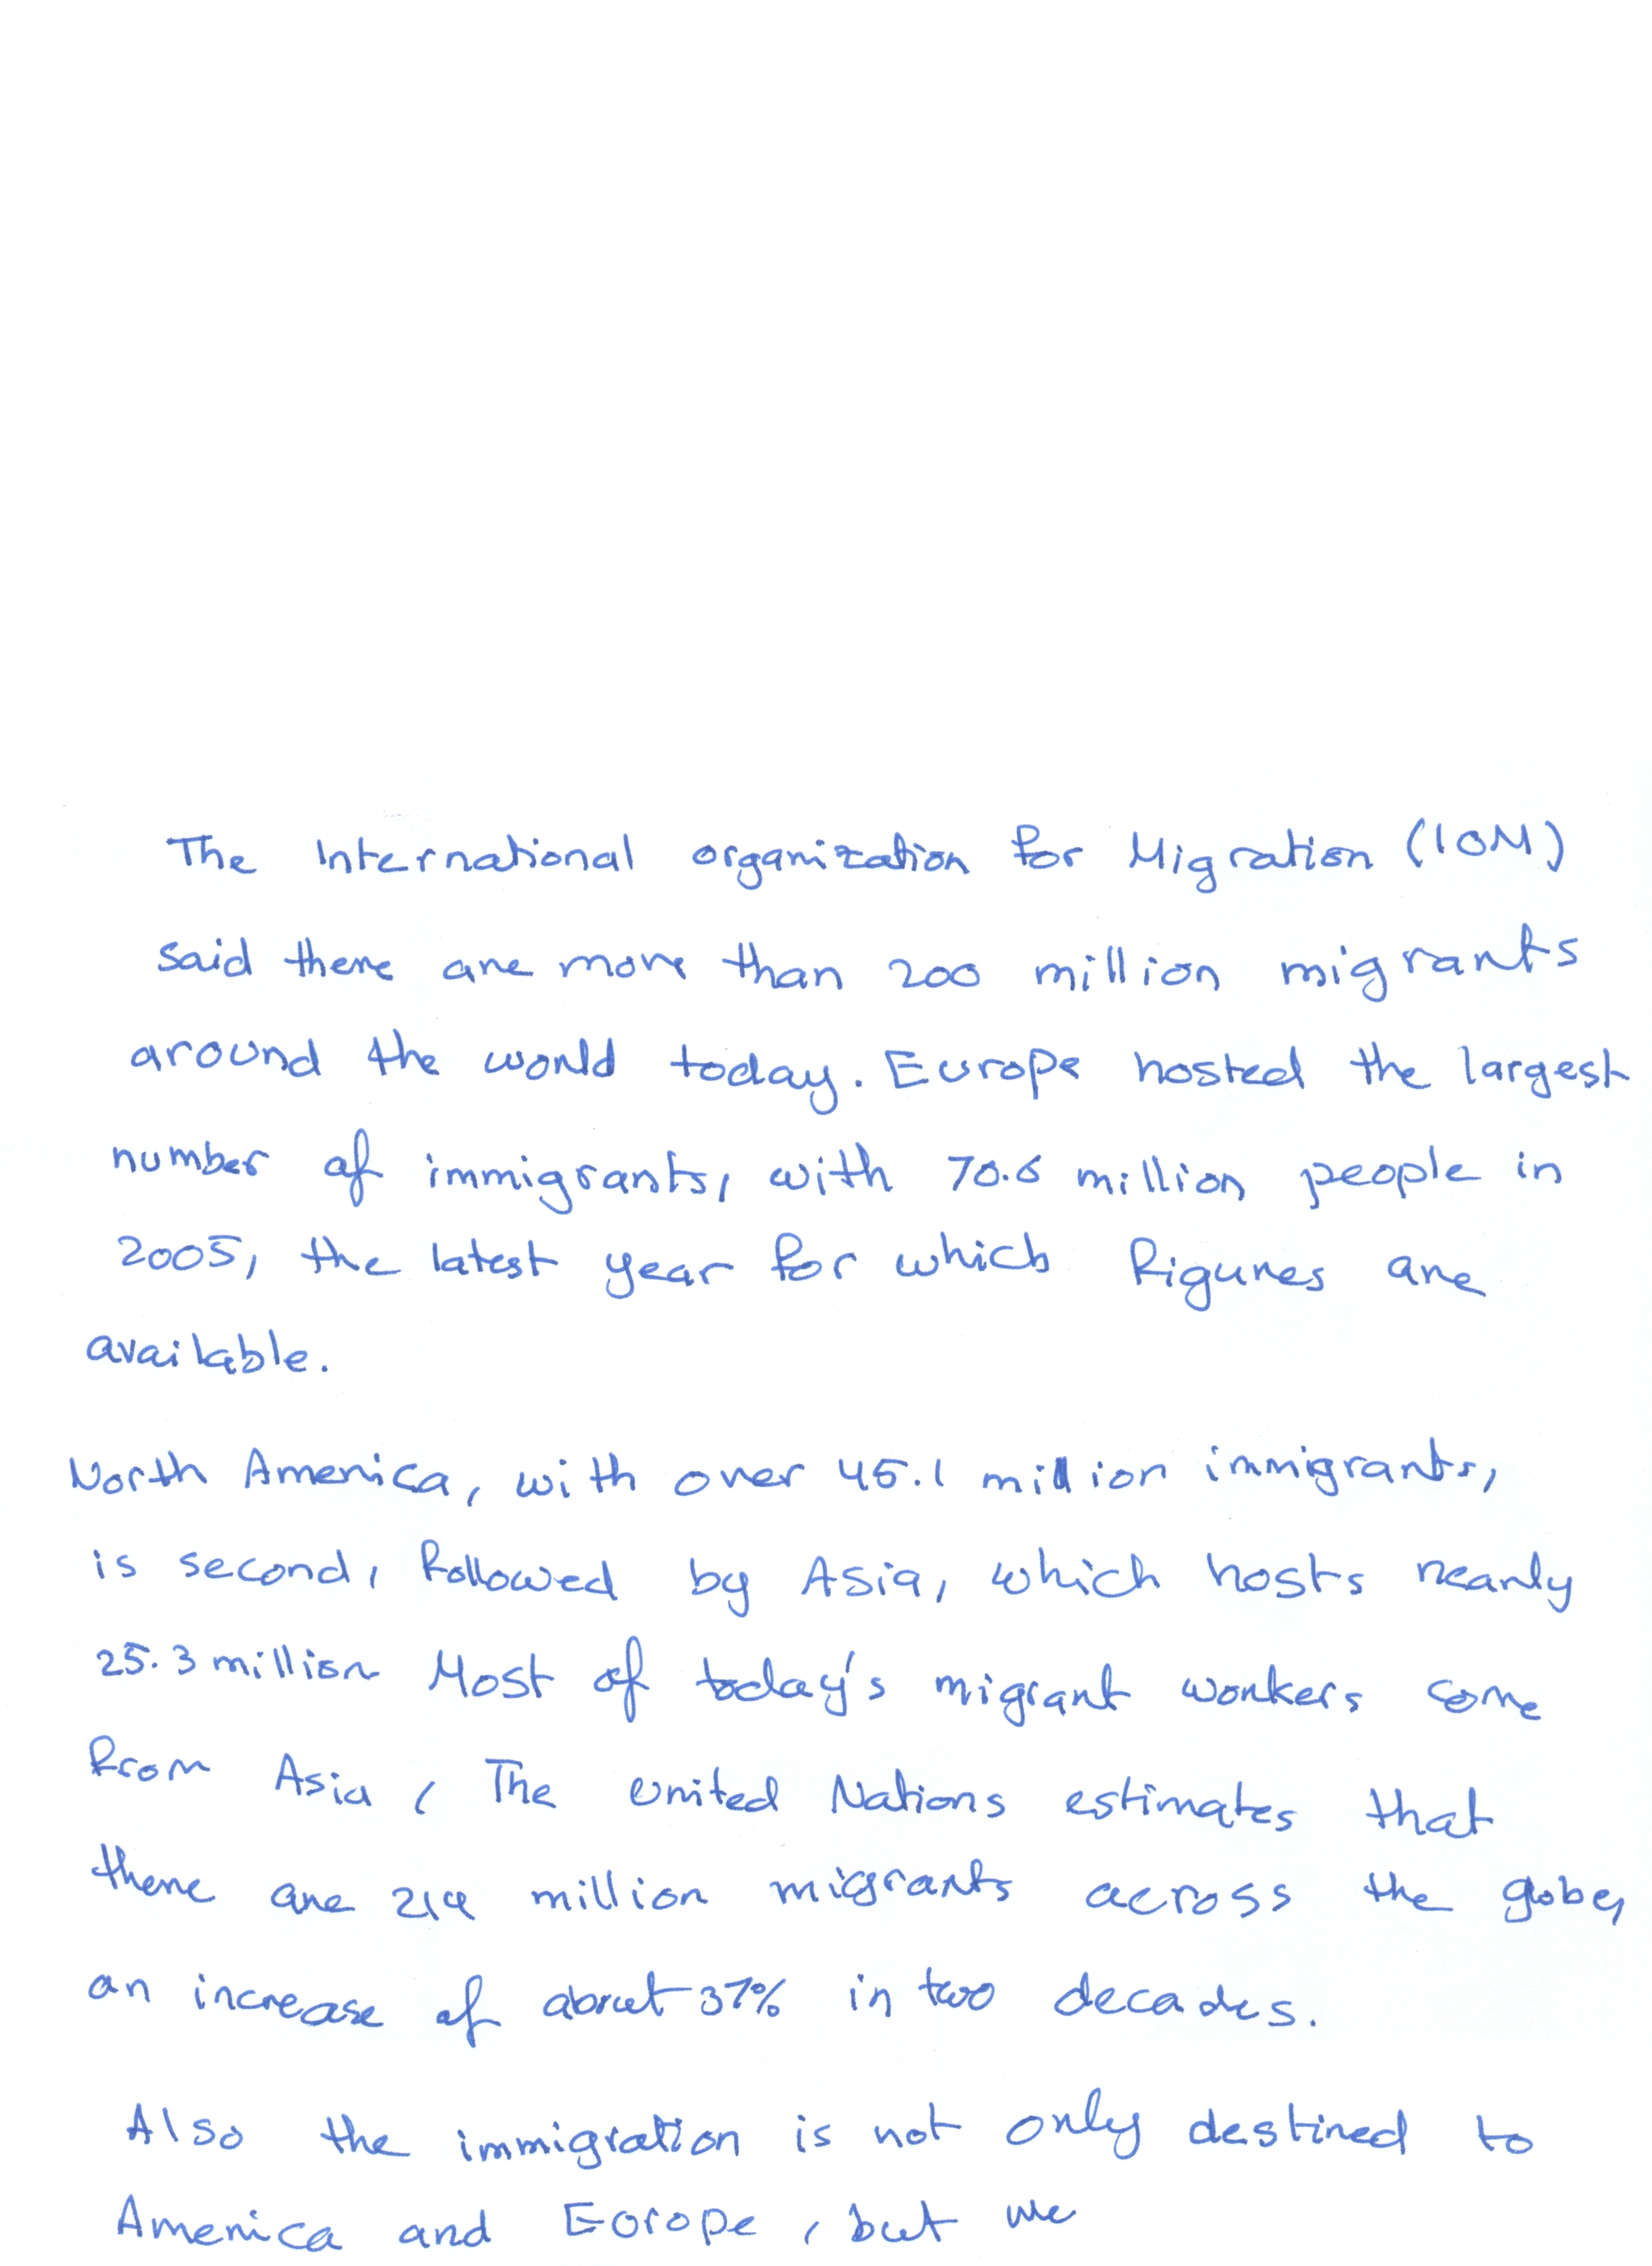 The International organization for Migration (IOM)
said there are more than 200 million migrants
around the world today. Europe hosted the largest
number of immigrants, with 70.6 million people in
2005, the latest year for which figures are
available.
North America, with over 45.1 million immigrants,
is second, followed by Asia, which hosts nearly
25.3 million Most of today's migrant workers come
from Asia, The United Nations estimates that
there are 214 million migrants across the globe,
an increase of about 37% in two decades.
Also the immigration is not only destined to
America and Eorope, but we